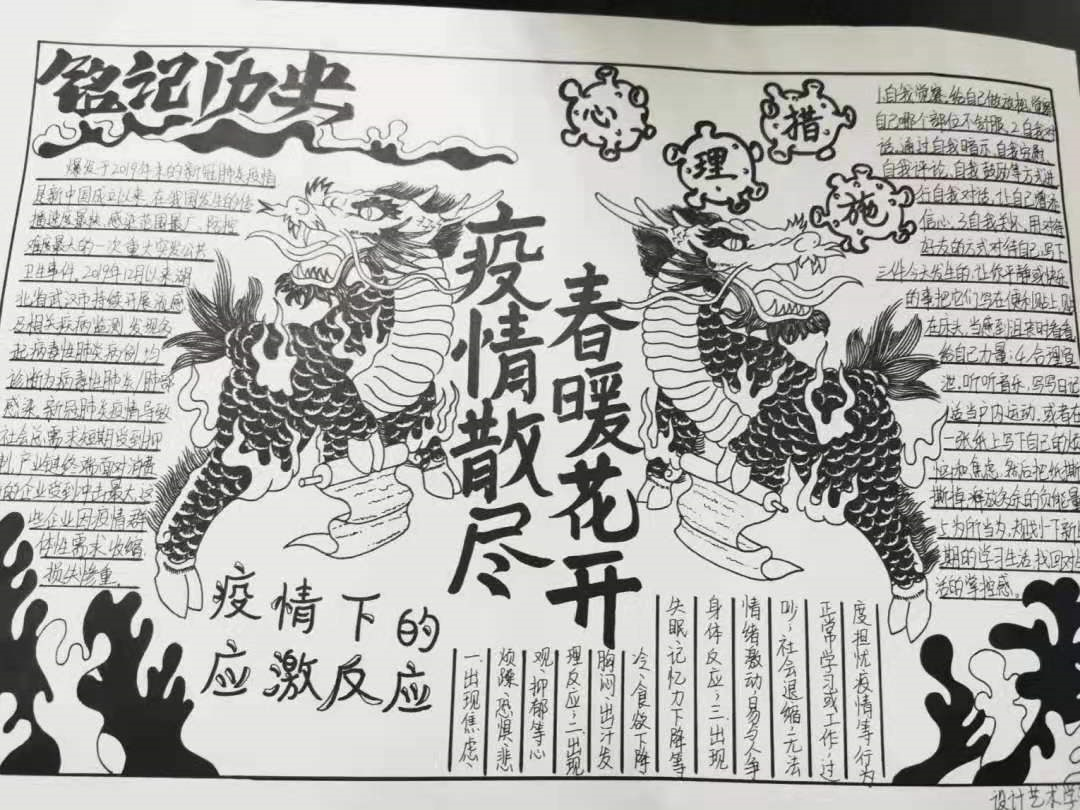 铭记历史
爆发于2019年末的新冠肺炎疫情
是新中国成立以来,在我国发生的传
播速度最快,感染范围最广,防控
难度最大的一次重大突发公共
卫生事件,2019年12月以来,湖
北省武汉市持续开展流感
及相关疾病监测,发现多
起病毒性肺炎病例,均
诊断为病毒性肺炎/肺部
感染,新冠肺炎疫情导致
社会总需求短期受到抑
制,产业链终端面对消费
的企业受到冲击最大,这
些企业因疫情群
体性需求收缩,
损失惨重。
疫情散尽
春暖花开
心理措施
1.自我觉察,给自己做放松,觉察
自己哪个部位不舒服、2.自我对
话,通过自我暗示、自我安慰、
自我评论、自我鼓励等方式进
行自我对话,让自己增添
信心、3.自我关怀,用对待
好友的方式对待自己,写下
三件今天发生的,让你平静或快乐
的事,把它们写在便利贴上,贴
在床头,当感到沮丧时看看
给自己力量;4.合理宣
泄,听听音乐、写写日记
适当户内运动,或者在
一张纸上写下自己的
和焦虑,然后把纸撕
撕掉,释放多余的负能量
5.为所当为,规划一下新
期的学习生活,找回对生
活的掌控感。
疫情下的
应激反应
一.出现焦虑、
烦躁、恐惧、悲
观、抑郁等心
理反应;二.出现
胸闷、出汗、发
冷、食欲下降、
失眠、记忆力下降等
身体反应;三.出现
情绪激动、易与人争
吵、社会退缩、无法
正常学习或工作、过
度担忧疫情等行为
设计艺术学